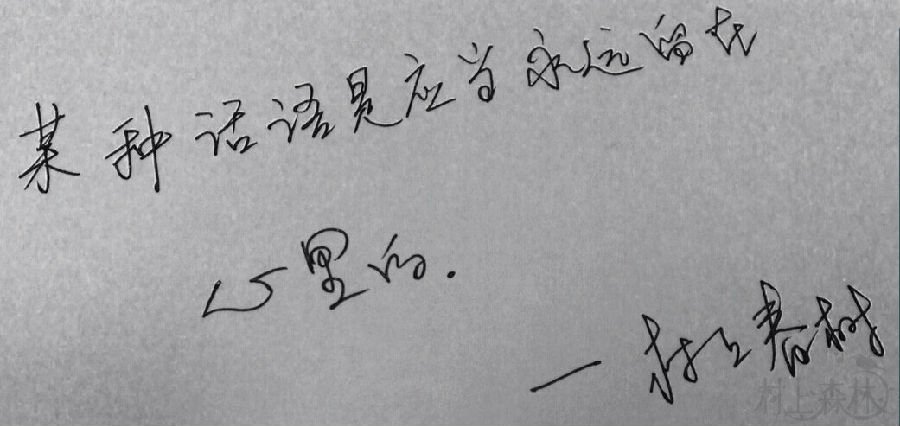 某种话语是应当永远留在
心里的.
—村上春树
村上森林